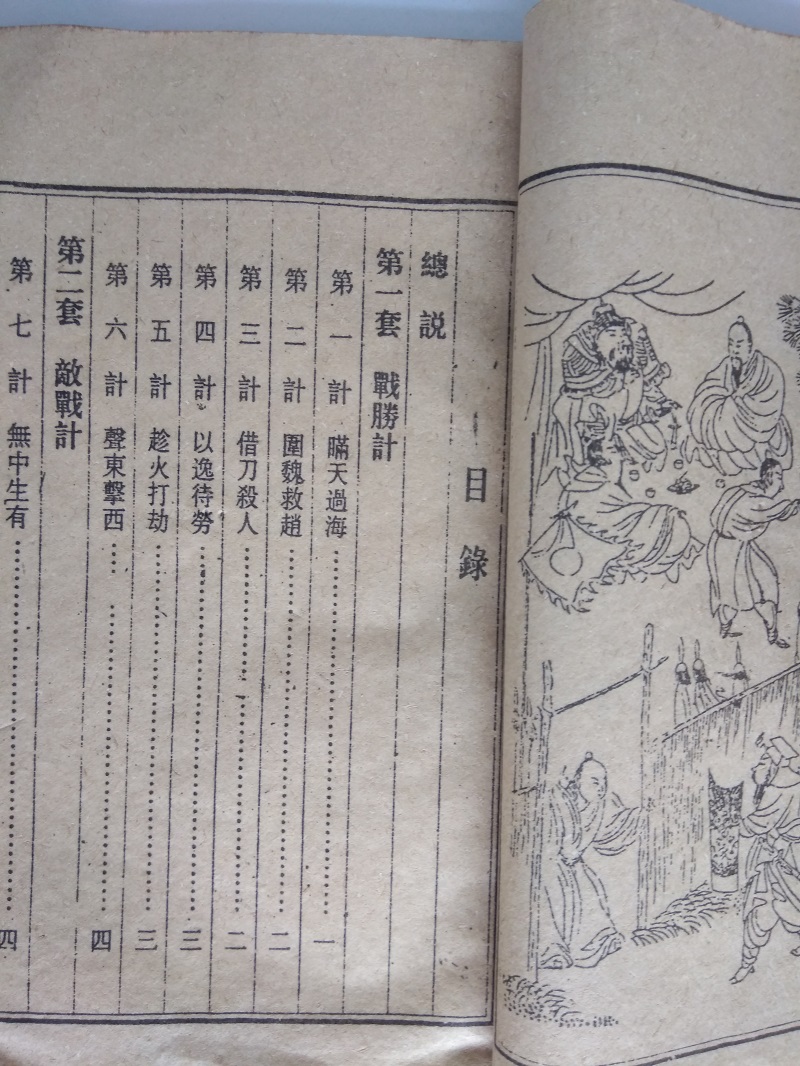 目錄
總説
第一套 戰勝計
第一計 瞞天過海……………一
第二計 圍魏救趙……………二
第三計 借刀殺人……………二
第四計 以逸待勞……………三
第五計 趁火打劫……………三
第六計 聲東擊西……………四
第二套 敵戰計
第七計 無中生有……………四